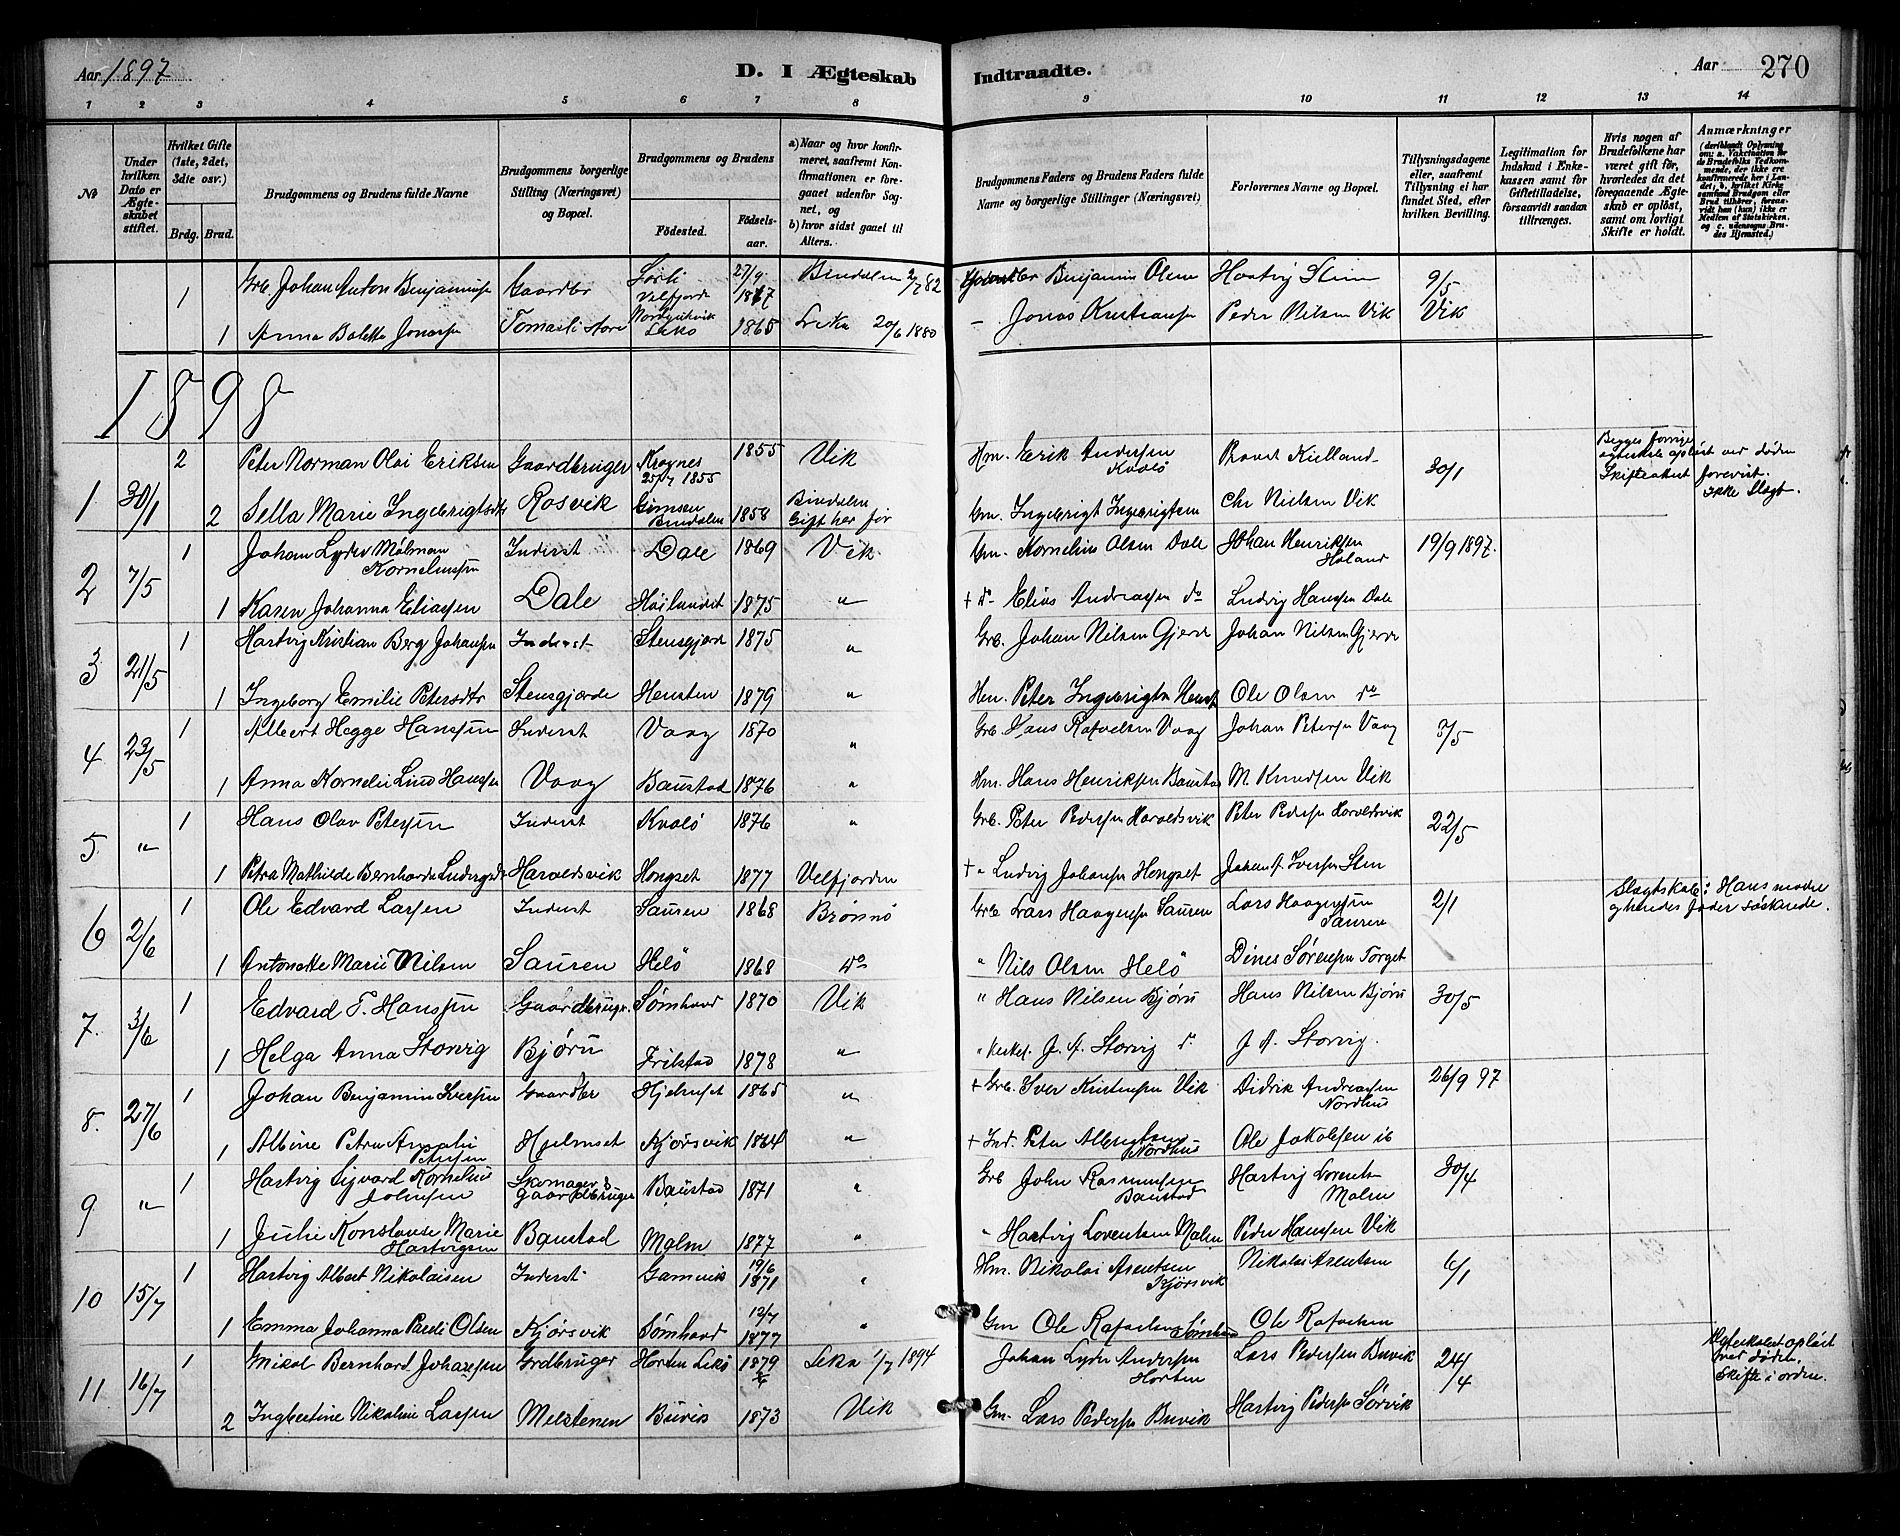 Aar 1897
D. I Ægteskab Indtraadte.
Aar 270
1 2 3 4 5 6 7 8 9 10 11 12 13 14
No
Under hvilken Dato er Ægteskabet stiftet.
Hvilket Gifte (1ste, 2det, 3die osv.)
Brdg. Brud.
Brudgommens og Brudens fulde Navne
Brudgommens borgerlige Stilling (Næringsvei) og Bopæl.
Brudgommens og Brudens
Födested. Födselsaar.
a) Naar og hvor konfirmeret, saafremt Konfirmationen er foregaaet udenför Sognet, og
b) hvor sidst gaaet til Alters.
Brudgommens Faders og Brudens Faders fulde Navne og borgerlige Stillinger (Næringsvei)
Forlovernes Navne og Bopæl.
Tillysningsdagene eller, saafremt Tillysning ei har fundet Sted, efter hvilken Bevilling.
Legitimation for Indskud i Enkekassen samt for Giftetilladelse, forsaavidt saadan tiltrænges.
Hvis nogen af Brudefolkene har været gift för, hvorledes da det foregaaende Ægteskab er oplöst, samt om lovligt Skifte er holdt.
Anmærkninger
(deriblandt Oplysning om: a. Vakcination for de Brudefolks Vedkommende, der ikke ere konfirmerede her i Landet, b. hvilket Kirkesamfund Brudgom eller Brud tilhörer, forsaavidt han (hun) ikke er Medlem af Statskirken, og c. udensogns Brudes Hjemsted.)
1 Grb Johan Anton Benjaminsen Gaardbr Sörli Velfjord 27/9 1867 Bindalen 2/7 82 Gaardbr Benjamin Olsen Hartvig Sten 9/5
1 Anna Balette Jonasen Tomasli store Leka 1865 Leka 20/6 1880 – Jonas Kristiansen Peder Nilsen Vik Vik
1898
2 Peter Norman Olai Eriksen Gaardbruger Kroknes 25/7 1855 1855 Vik Hm. Erik Andersen Kvalö Provst Kielland 30/1 Begges forrige ægteskab oplöst ved döden Skifteattest forevist. ikke Slegt.
1 30/1 2 Sella Marie Ingebrigtsdtr Rosvik Gimsen Bindalen 1858 Bindalen Gift her för Gm. Ingebrigt Ingebrigtsen Chr Nielsen Vik
1 Johan Lyder Mølman Kornelussen Inderst Dale 1869 Vik Gm. Kornelius Olsen Dale Johan Henriksen Høland 19/9 1897.
2 7/5 1 Karen Johanna Eliassen Dale Höilandet 1875 " + do Elias Andreassen do Ludvig Hansen Dale
1 Hartvig Kristian Berg Johansen Inderst Stensgjerde 1875 " Grb. Johan Nilsen Gjerde Johan Nilsen Gjerde
3 21/5 1 Ingeborg Emilie Petersdtr Stensgjerde Hensten 1879 " Hm. Peter Ingebrigtn Ole Olsen do
1 Albert Hegge Hanssen Inderst Vaag 1870 " Grb. Hans Rafaelsen Vaag Johan Petersen Vaag 3/5
4 23/5 1 Anna Kornelie Lind Hanssen Vaag Baustad 1876 " Hm. Hans Henriksen Baustad M. Knudsen Vik
1 Hans Olav Petersen Inderst Kvalö 1876 " Grb. Peter Pedersen Haroldsvik Peter Pedersen Haroldsvik 22/5
5. " 1 Petra Mathilde Bernharda Ludvigsdtr Haroldsvik Hongset 1877 Velfjorden + " Ludvig Johansen Hongset Johan A. Iversen Sten
1 Ole Edvard Larsen Inderst Sausen 1868 Brønnø Grb Lars Haagensen Sausen Lars Haagensen Sausen 2/1 Slagtskab: Hans moder og hendes fader söskende.
6 2/6 1 Antonette Marie Nilsen Sausen Helö 1868 do " Nils Olsen Helö Dines Sörensen Torget
1 Edvard T. Hanssen Gaardbruger Sømhavd 1870 Vik " Hans Nilsen Bjøru Hans Nilsen Bjøru 30/5
7. 3/6 1 Helga Anna Storvig Bjøru Frilstad 1878 " " J. A. Storvig J A. Storvig.
1 Johan Benjamin Iversen Gaardbr Hjelmset 1865 " + Grb. Iver Kristensen Vik Didrik Andreassen Nordhus 26/9 97
8. 27/6 1 Albine Petra Amalie Petersen Hjelmset Kjörsvik 1864 " + Ind. Peter Albrigtsen Nordhus Ole Jakobsen ib
1 Hartvig Sigvard Kornelius Johnsen Skomager & Gaardbruger Baustad 1871 " Grb John Rasmussen Baustad Hartvig Lorents Malm 30/4
9 " 1 Julie Konstanse Marie Hartvigsen Baustad Malm 1877 " " Hartvig Lorentsen Malm Peder Hansen Vik
1 Hartvig Albert Nikolaisen Inderst Gamvik 19/6 1871 " Hm. Nikolai Arentsen Kjørsvik Nikolai Arentsen 6/1
10 15/7 1 Emma Johanna Olsen Kjörsvik Sømhavd 12/7 1877 " Gm Ole Rafaelsen Sømhavd Ole Rafaelsen
1 Mikal Bernhard Johansen Grdbruger Horten Lekö 1879 Leka 1/7 1894 Johan Lyder Andersen Horten Lars Pedersen Buvik 24/4 Ægteskabet oplöst ved döden. Skifte i orden.
11 16/7 2 Ingbertine Nikoline Larsen Melstenen Buvik 1873 Vik Gm. Lars Pedersen Buvik Hartvig Pedersen Sörvik